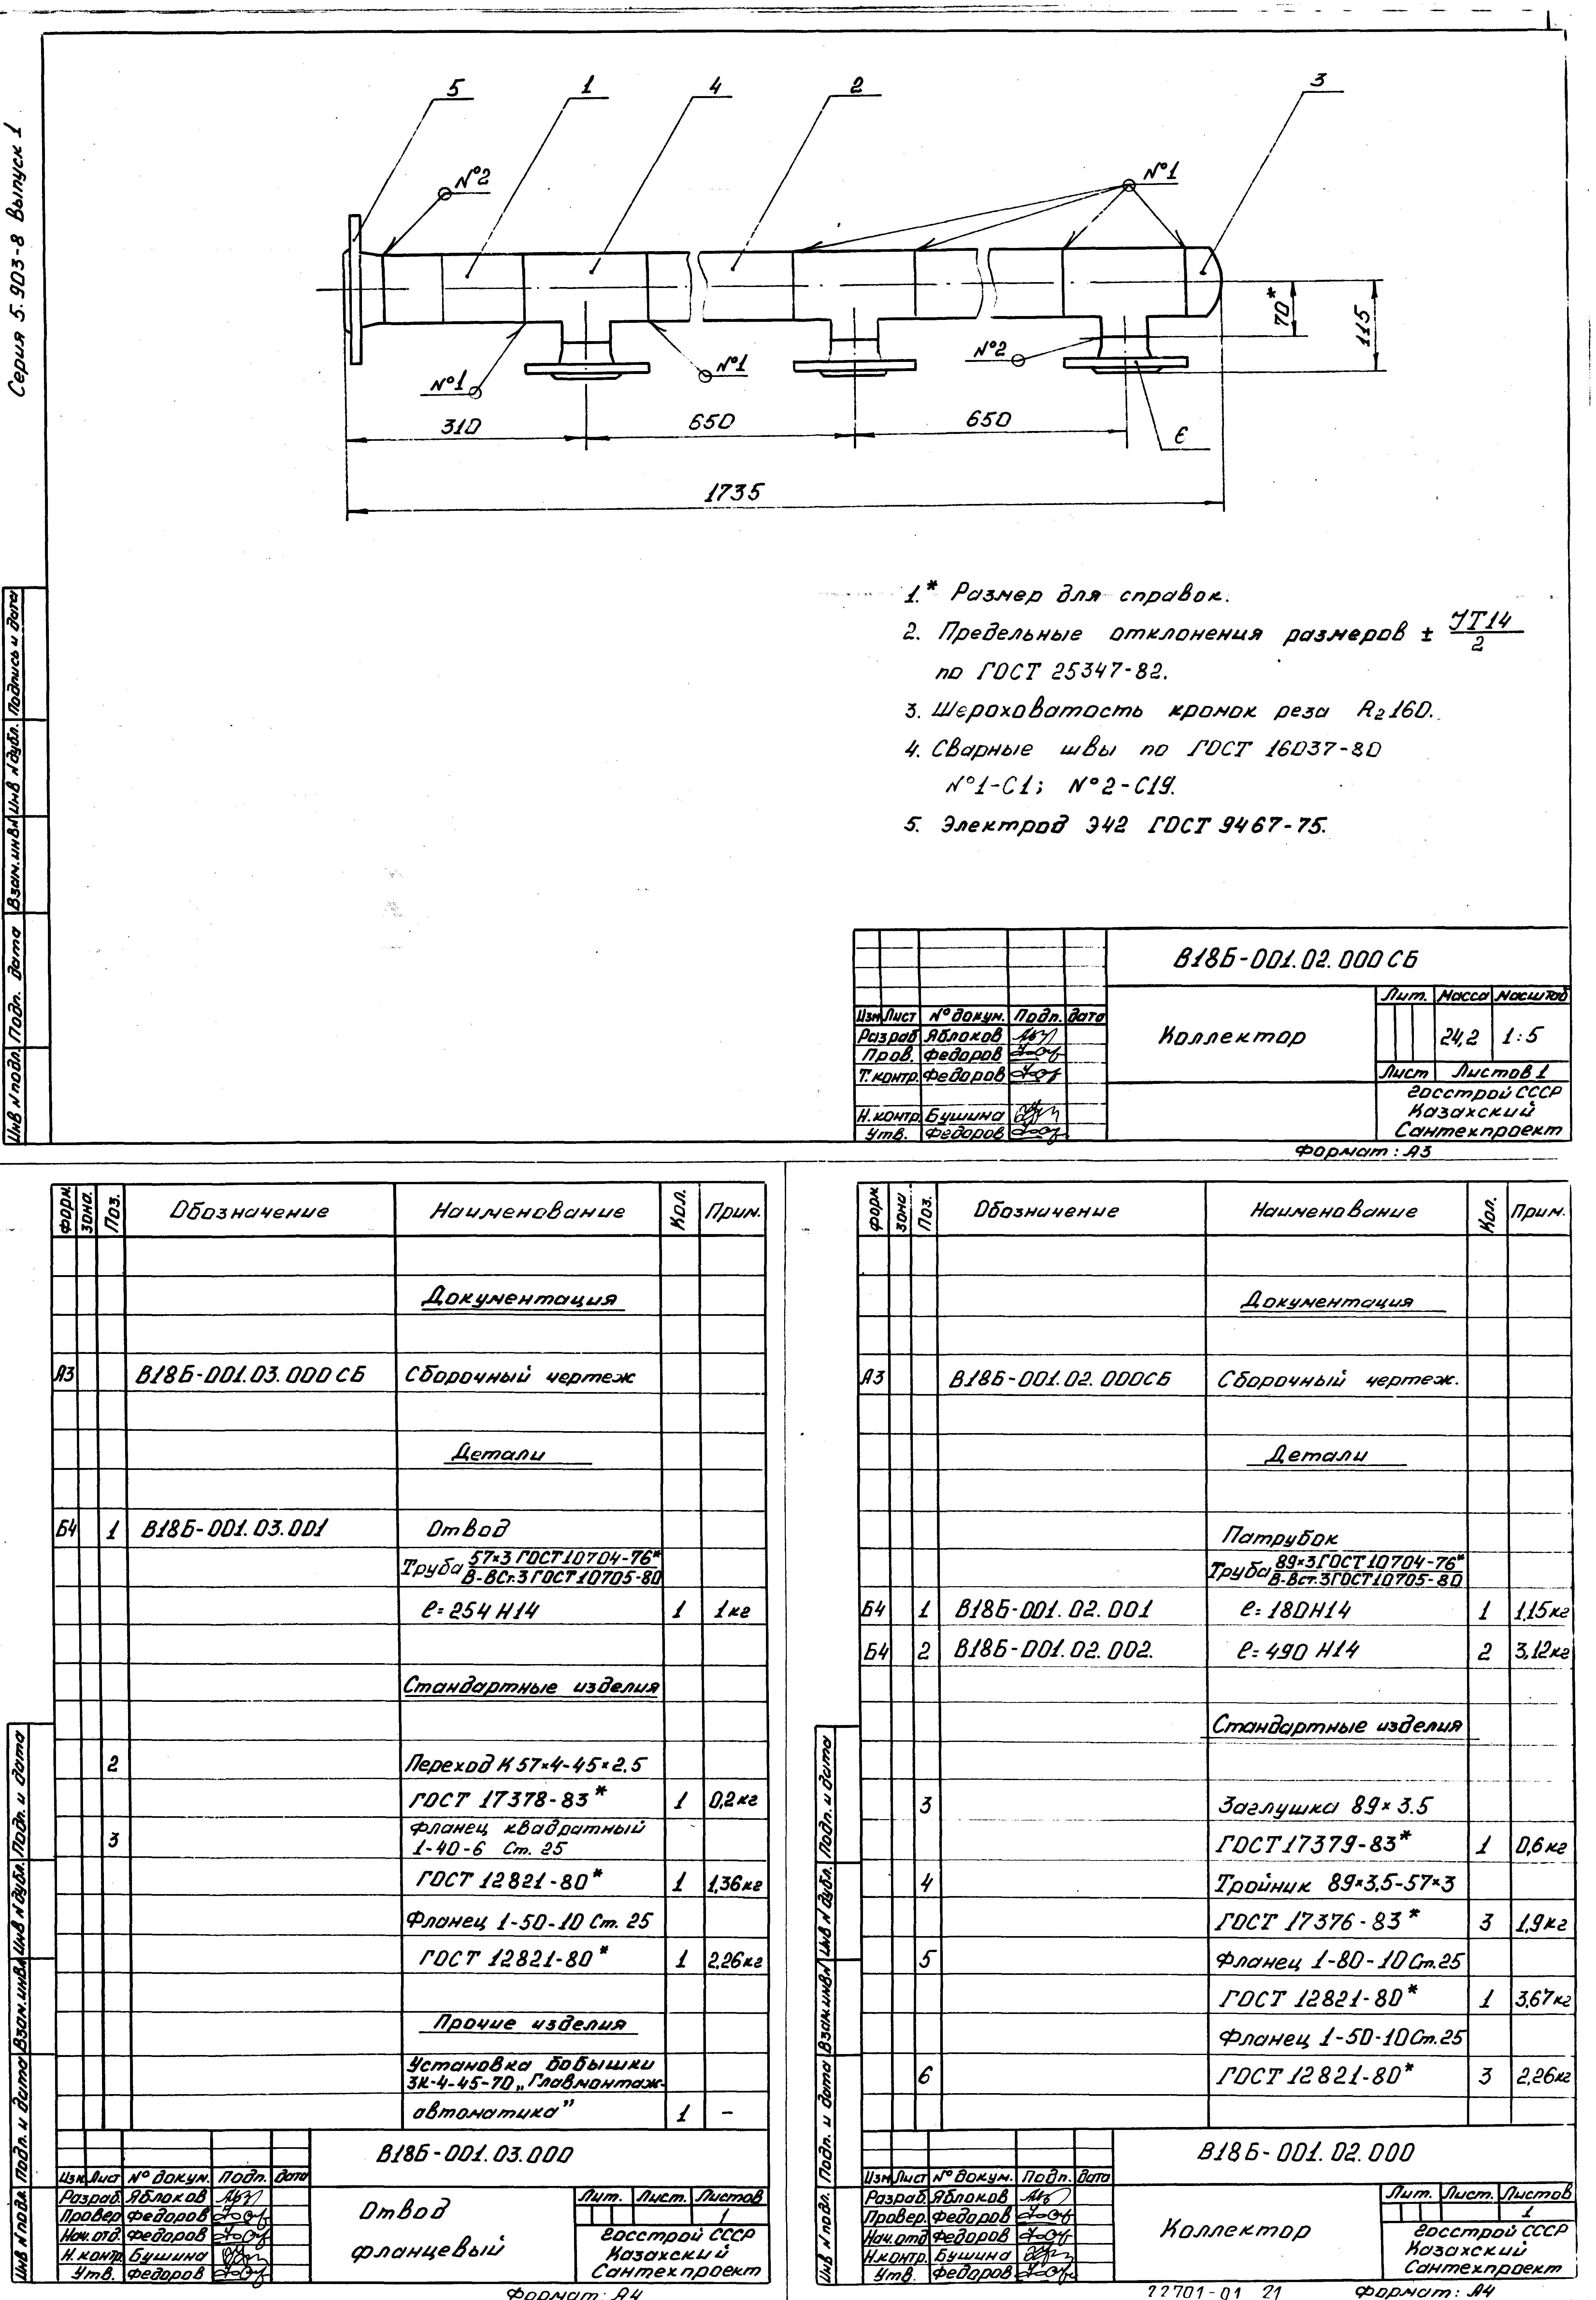 Серия 5.903-8 Выпуск 1
5
1
4
2
3
№2
№1
№1
№1
№2
70*
115
310
650
650
6
1735
1.* Размер для справок.
2. Предельные отклонения размеров ± JT14/2
по ГОСТ 25347-82.
3. Шероховатость кромок реза Rz160.
4. Сварные швы по ГОСТ 16037-80
№1-С1; №2-С19.
5. Электрод Э42 ГОСТ 9467-75.
Инв № подл.
Подп. дата
Взам.инв№
Инв №дубл.
Подпись и дата
В18Б-001.02.000 СБ
Изм Лист № докум. Подп. дата
Разраб Яблоков
Пров. Федоров
Т.контр. Федоров
Н.контр. Бушина
Утв. Федоров
Коллектор
Лит. Масса Масштаб
24,2 1:5
Лист Листов 1
Госстрой СССР
Казахский
Сантехпроект
Формат: А3
Форм. Зона. Поз. Обозначение Наименование Кол. Прим.
Документация
А3 В18Б-001.03.000 СБ Сборочный чертеж
Детали
Б4 1 В18Б-001.03.001 Отвод
Труба 57×3 ГОСТ10704-76*
В-ВСт.3 ГОСТ10705-80
ℓ=254 Н14 1 1кг
Стандартные изделия
2 Переход К 57×4-45×2.5
ГОСТ 17378-83* 1 0,2кг
3 Фланец квадратный
1-40-6 Ст. 25
ГОСТ 12821-80* 1 1,36кг
Фланец 1-50-10 Ст. 25
ГОСТ 12821-80* 1 2,26кг
Прочие изделия
Установка бобышки
ЗК-4-45-70 „Главмонтаж-
автоматика” 1 -
Инв № подл.
Подп. и дата
Взам.инв№
Инв №дубл.
Подп. и дата
В18Б-001.03.000
Изм Лист № докум. Подп. дата
Разраб. Яблоков
Провер Федоров
Нач.отд. Федоров
Н.контр. Бушина
Утв. Федоров
Отвод
фланцевый
Лит. Лист. Листов
1
Госстрой СССР
Казахский
Сантехпроект
Формат: А4
Форм Зона Поз. Обозначение Наименование Кол. Прим.
Документация
А3 В18Б-001.02.000СБ Сборочный чертеж.
Детали
Патрубок
Труба 89×3ГОСТ10704-76*
В-Вст.3ГОСТ10705-80
Б4 1 В18Б-001.02.001 ℓ=180Н14 1 1,15кг
Б4 2 В18Б-001.02.002. ℓ=490 Н14 2 3,12кг
Стандартные изделия
3 Заглушка 89×3.5
ГОСТ17379-83* 1 0,6кг
4 Тройник 89×3,5-57×3
ГОСТ 17376-83* 3 1,9кг
5 Фланец 1-80-10 Ст.25
ГОСТ 12821-80* 1 3,67кг
Фланец 1-50-10Ст.25
6 ГОСТ 12821-80* 3 2,26кг
Инв № подл.
Подп. и дата
Взам.инв№
Инв № дубл.
Подп. и дата
В18Б-001.02.000
Изм Лист № докум. Подп. дата
Разраб. Яблоков
Провер. Федоров
Нач.отд Федоров
Н.контр. Бушина
Утв. Федоров
Коллектор
Лит. Лист. Листов
1
Госстрой СССР
Казахский
Сантехпроект
22701-01 21 Формат: А4